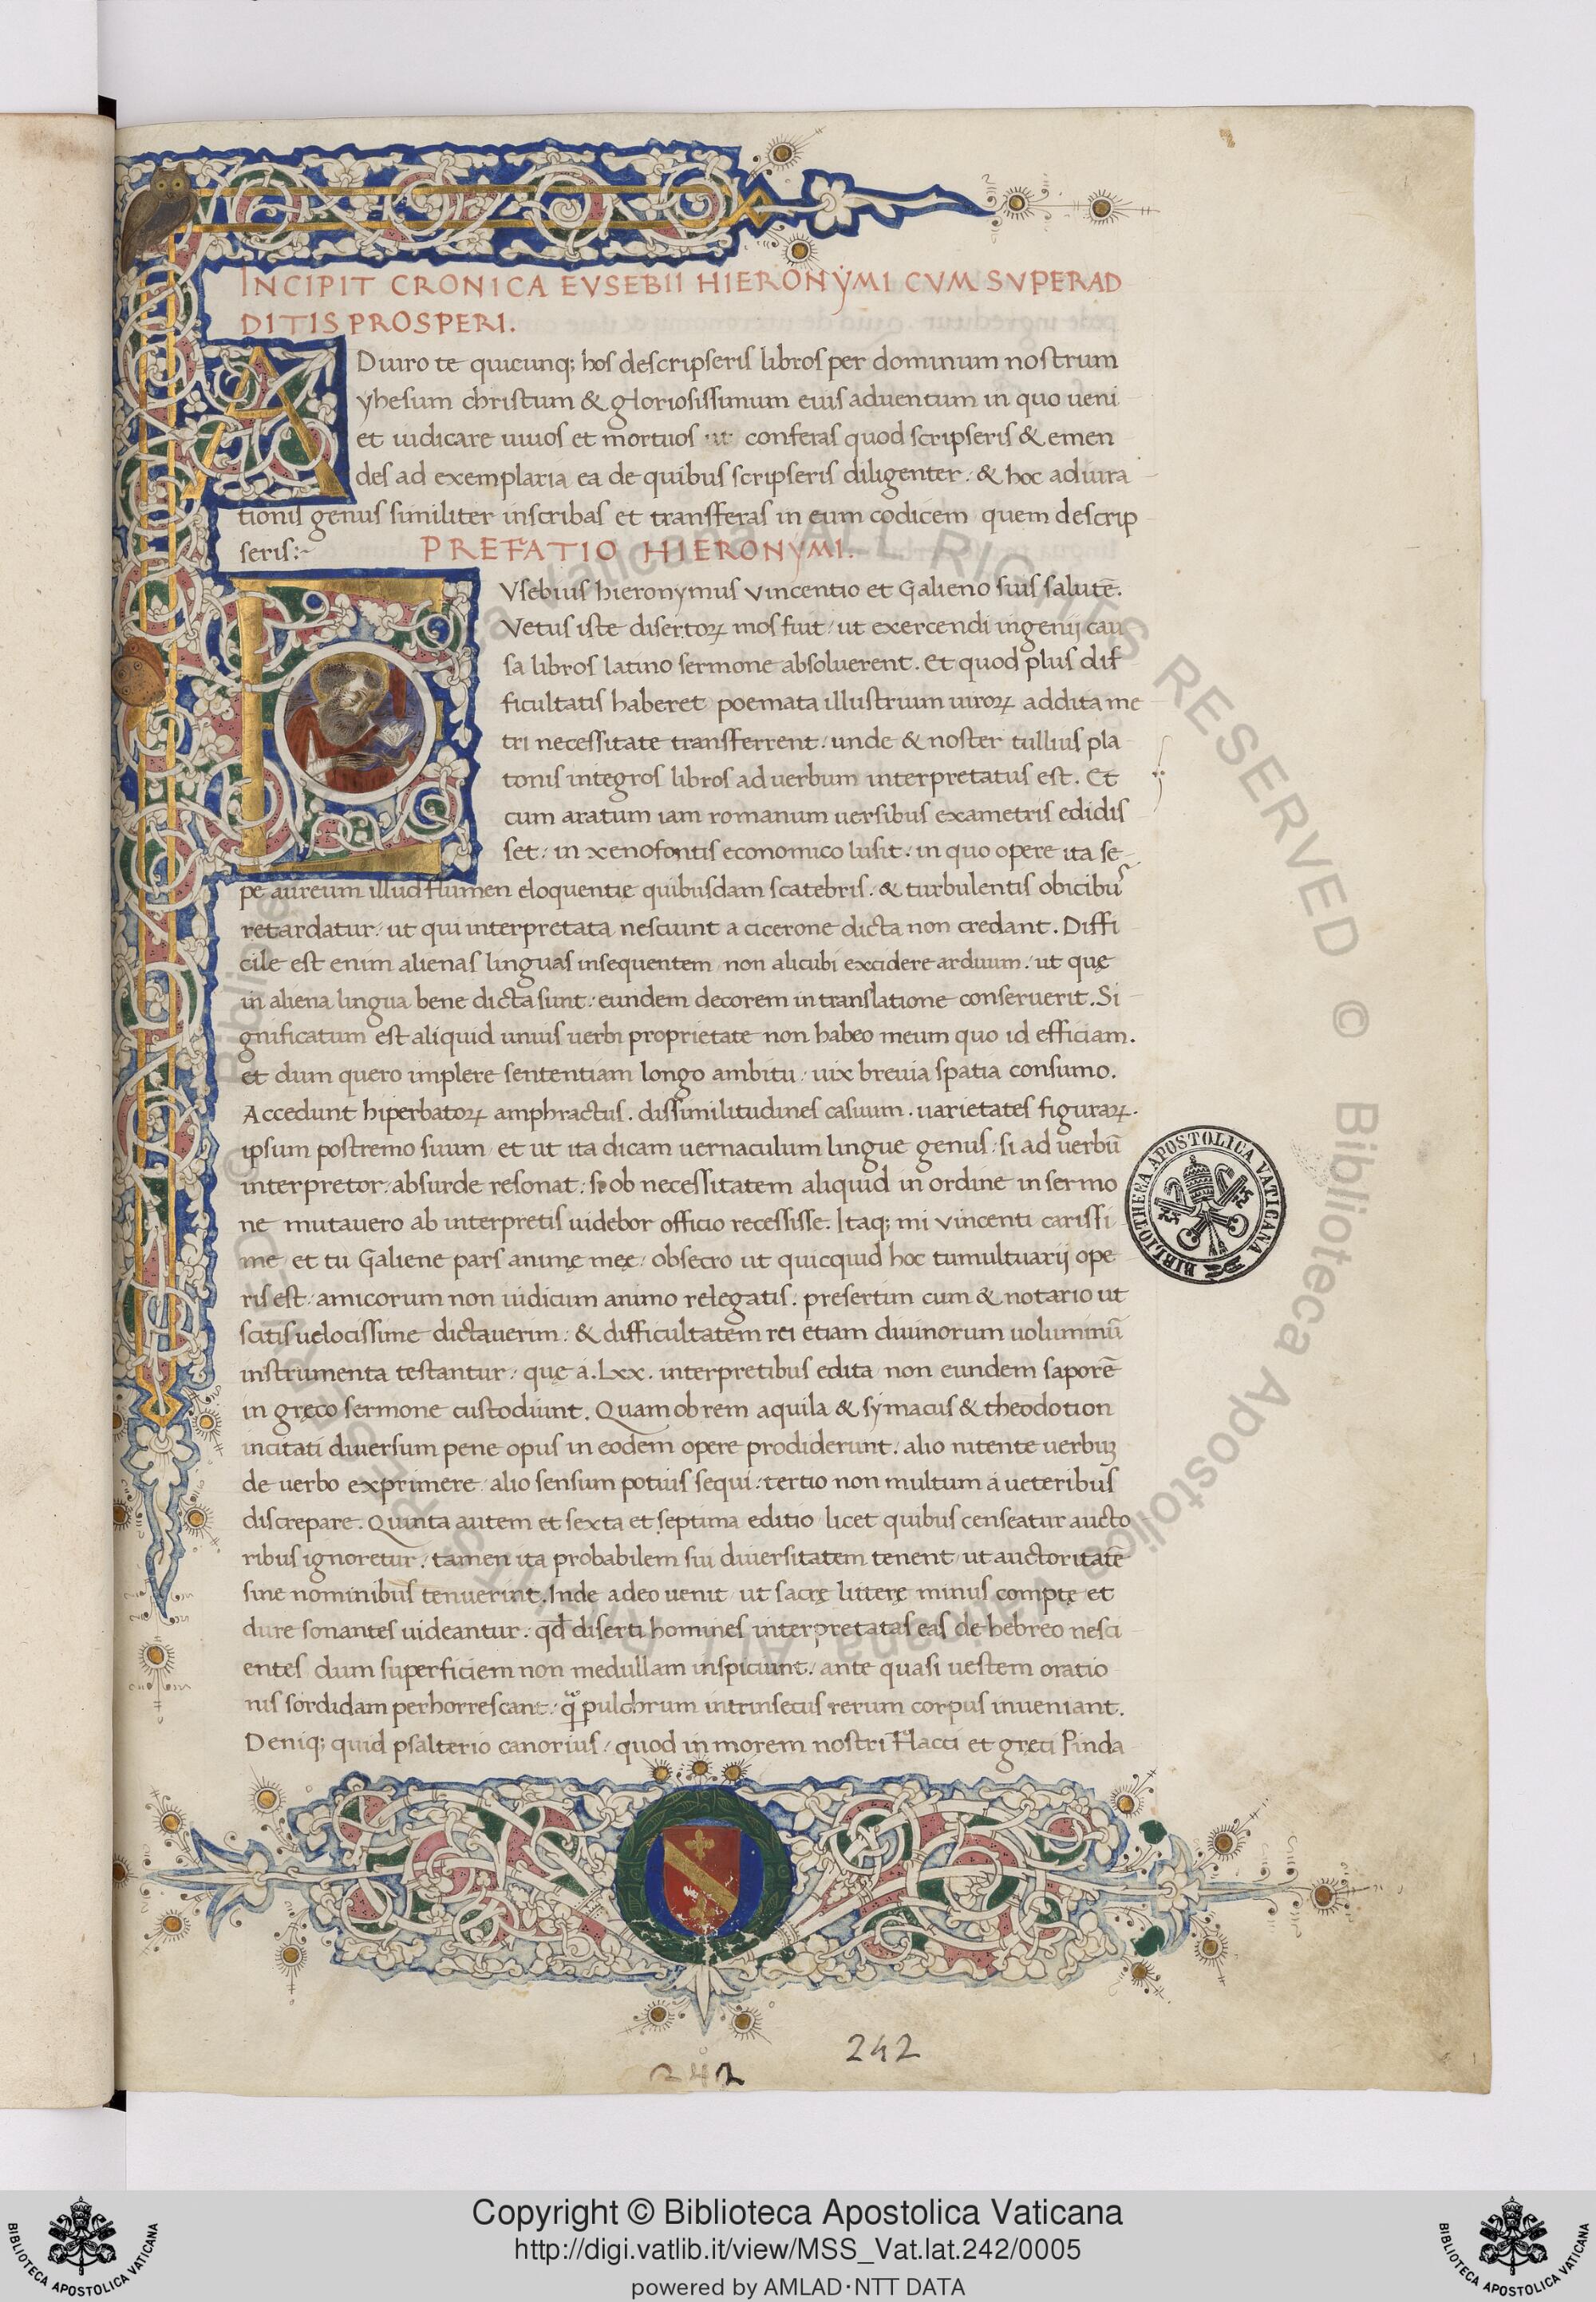 INCIPIT CRONICA EVSEBII HIERONẎMI CVM SVPERAD
DITIS PROSPERI.
ADiuro te quicunq; hos descripseris libros per dominum nostrum
yhesum christum & gloriosissimum eius aduentum in quo ueni
et iudicare uiuos et mortuos ut conferas quod scripseris & emen
des ad exemplaria ea de quibus scripseris diligenter. & hoc adiura
tionis genus similiter inscribas et transferas in eum codicem quem descrip
seris:~ PREFATIO HIERONYMI.
EVsebius hieronymus Vincentio et Galieno suis salutē.
Vetus iste disertoꝝ mos fuit ut exercendi ingenij cau
sa libros latino sermone absoluerent. Et quod plus dif
ficultatis haberet poemata illustrium uiroꝝ addita me
tri necessitate transferrent: unde & noster tullius pla
tonis integros libros ad uerbum interpretatus est. Et
cum aratum iam romanum uersibus exametris edidis
set: in xenofontis economico lusit. in quo opere ita se
pe aureum illud flumen eloquentie quibusdam scatebris. & turbulentis obicibus
retardatur: ut qui interpretata nesciunt a cicerone dicta non credant. Diffi
cile est enim alienas linguas insequentem non alicubi excidere arduum: ut quę
in aliena lingua bene dicta sunt: eundem decorem in translatione conseruerit. Si
gnificatum est aliquid unius uerbi proprietate non habeo meum quo id efficiam.
et dum quero implere sententiam longo ambitu: uix breuia spatia consumo.
Accedunt hiperbatoꝝ amphractus. dissimilitudines casuum. uarietates figuraꝝ.
ipsum postremo suum et ut ita dicam uernaculum lingue genus: si ad uerbū
interpretor: absurde resonat: si ob necessitatem aliquid in ordine in sermo
ne mutauero ab interpretis uidebor officio recessisse. Itaq; mi Vincenti carissi
me et tu Galiene pars animę meę: obsecro ut quicquid hoc tumultuarij ope
ris est: amicorum non iudicum animo relegatis. presertim cum & notario ut
scitis uelocissime dictauerim: & difficultatem rei etiam diuinorum uoluminū
instrumenta testantur: quę a .Lxx. interpretibus edita non eundem saporē
in gręco sermone custodiunt. Quamobrem aquila & symacus & theodotion
incitati diuersum pene opus in eodem opere prodiderunt: alio nitente uerbuꝫ
de uerbo exprimere: alio sensum potius sequi: tertio non multum a ueteribus
discrepare. Quinta autem et sexta et septima editio licet quibus censeatur aucto
ribus ignoretur: tamen ita probabilem sui diuersitatem tenent ut auctoritatē
sine nominibus tenuerint. Inde adeo uenit ut sacrę litterę minus comptę et
dure sonantes uideantur. qd̄ diserti homines interpretatas eas de hebreo nesci
entes dum superficiem non medullam inspiciunt: ante quasi uestem oratio
nis sordidam perhorrescant: pulchrum intrinsecus rerum corpus inueniant.
Deniq; quid psalterio canorius: quod in morem nostri Flacci et gręci Pinda
BIBLIOTHECA APOSTOLICA VATICANA
242
242
© Biblioteca Apostolica Vaticana ALL RIGHTS RESERVED
Copyright © Biblioteca Apostolica Vaticana
http://digi.vatlib.it/view/MSS_Vat.lat.242/0005
powered by AMLAD·NTT DATA
BIBLIOTECA APOSTOLICA VATICANA
BIBLIOTECA APOSTOLICA VATICANA